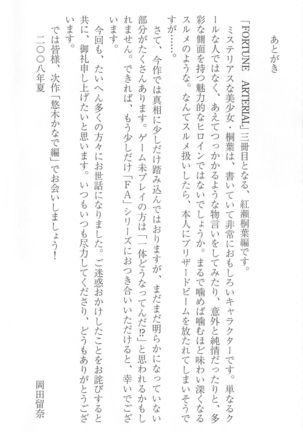 あとがき
『FORTUNE ARTERIAL』三冊目となる、紅瀬桐葉編です。
ミステリアスな美少女　桐葉は、書いていて非常におもしろいキャラクターです。単なるク
ールな人ではなく、あえてつっかかるような物言いをしてみたり、意外と純情だったりと、多
彩な側面を持つ魅力的なヒロインではないでしょうか。まるで噛めば噛むほど味わい深くなる
スルメのような。なんてスルメ扱いしたら、本人にブリザードビームを放たれてしまいそうで
すが……。
さて、今作では真相に少しだけ踏み込んではおりますが、まだまだ明らかになっていない
部分がたくさんあります。ゲーム未プレイの方は「一体どうなってんだ!?」と思われるかもし
れません。できれば、もう少しだけ『ＦＡ』シリーズにおつき合いいただけると、幸いでござ
います。
今回も、たいへん多くの方々にお世話になりました。ご迷惑おかけしたことをお詫びすると
共に、御礼申し上げたいと思います。いつもいつも尽力してくださり、どうもありがとうござ
います。
では皆様、次作『悠木かなで編』でお会いしましょう！
二〇〇八年夏
岡田留奈